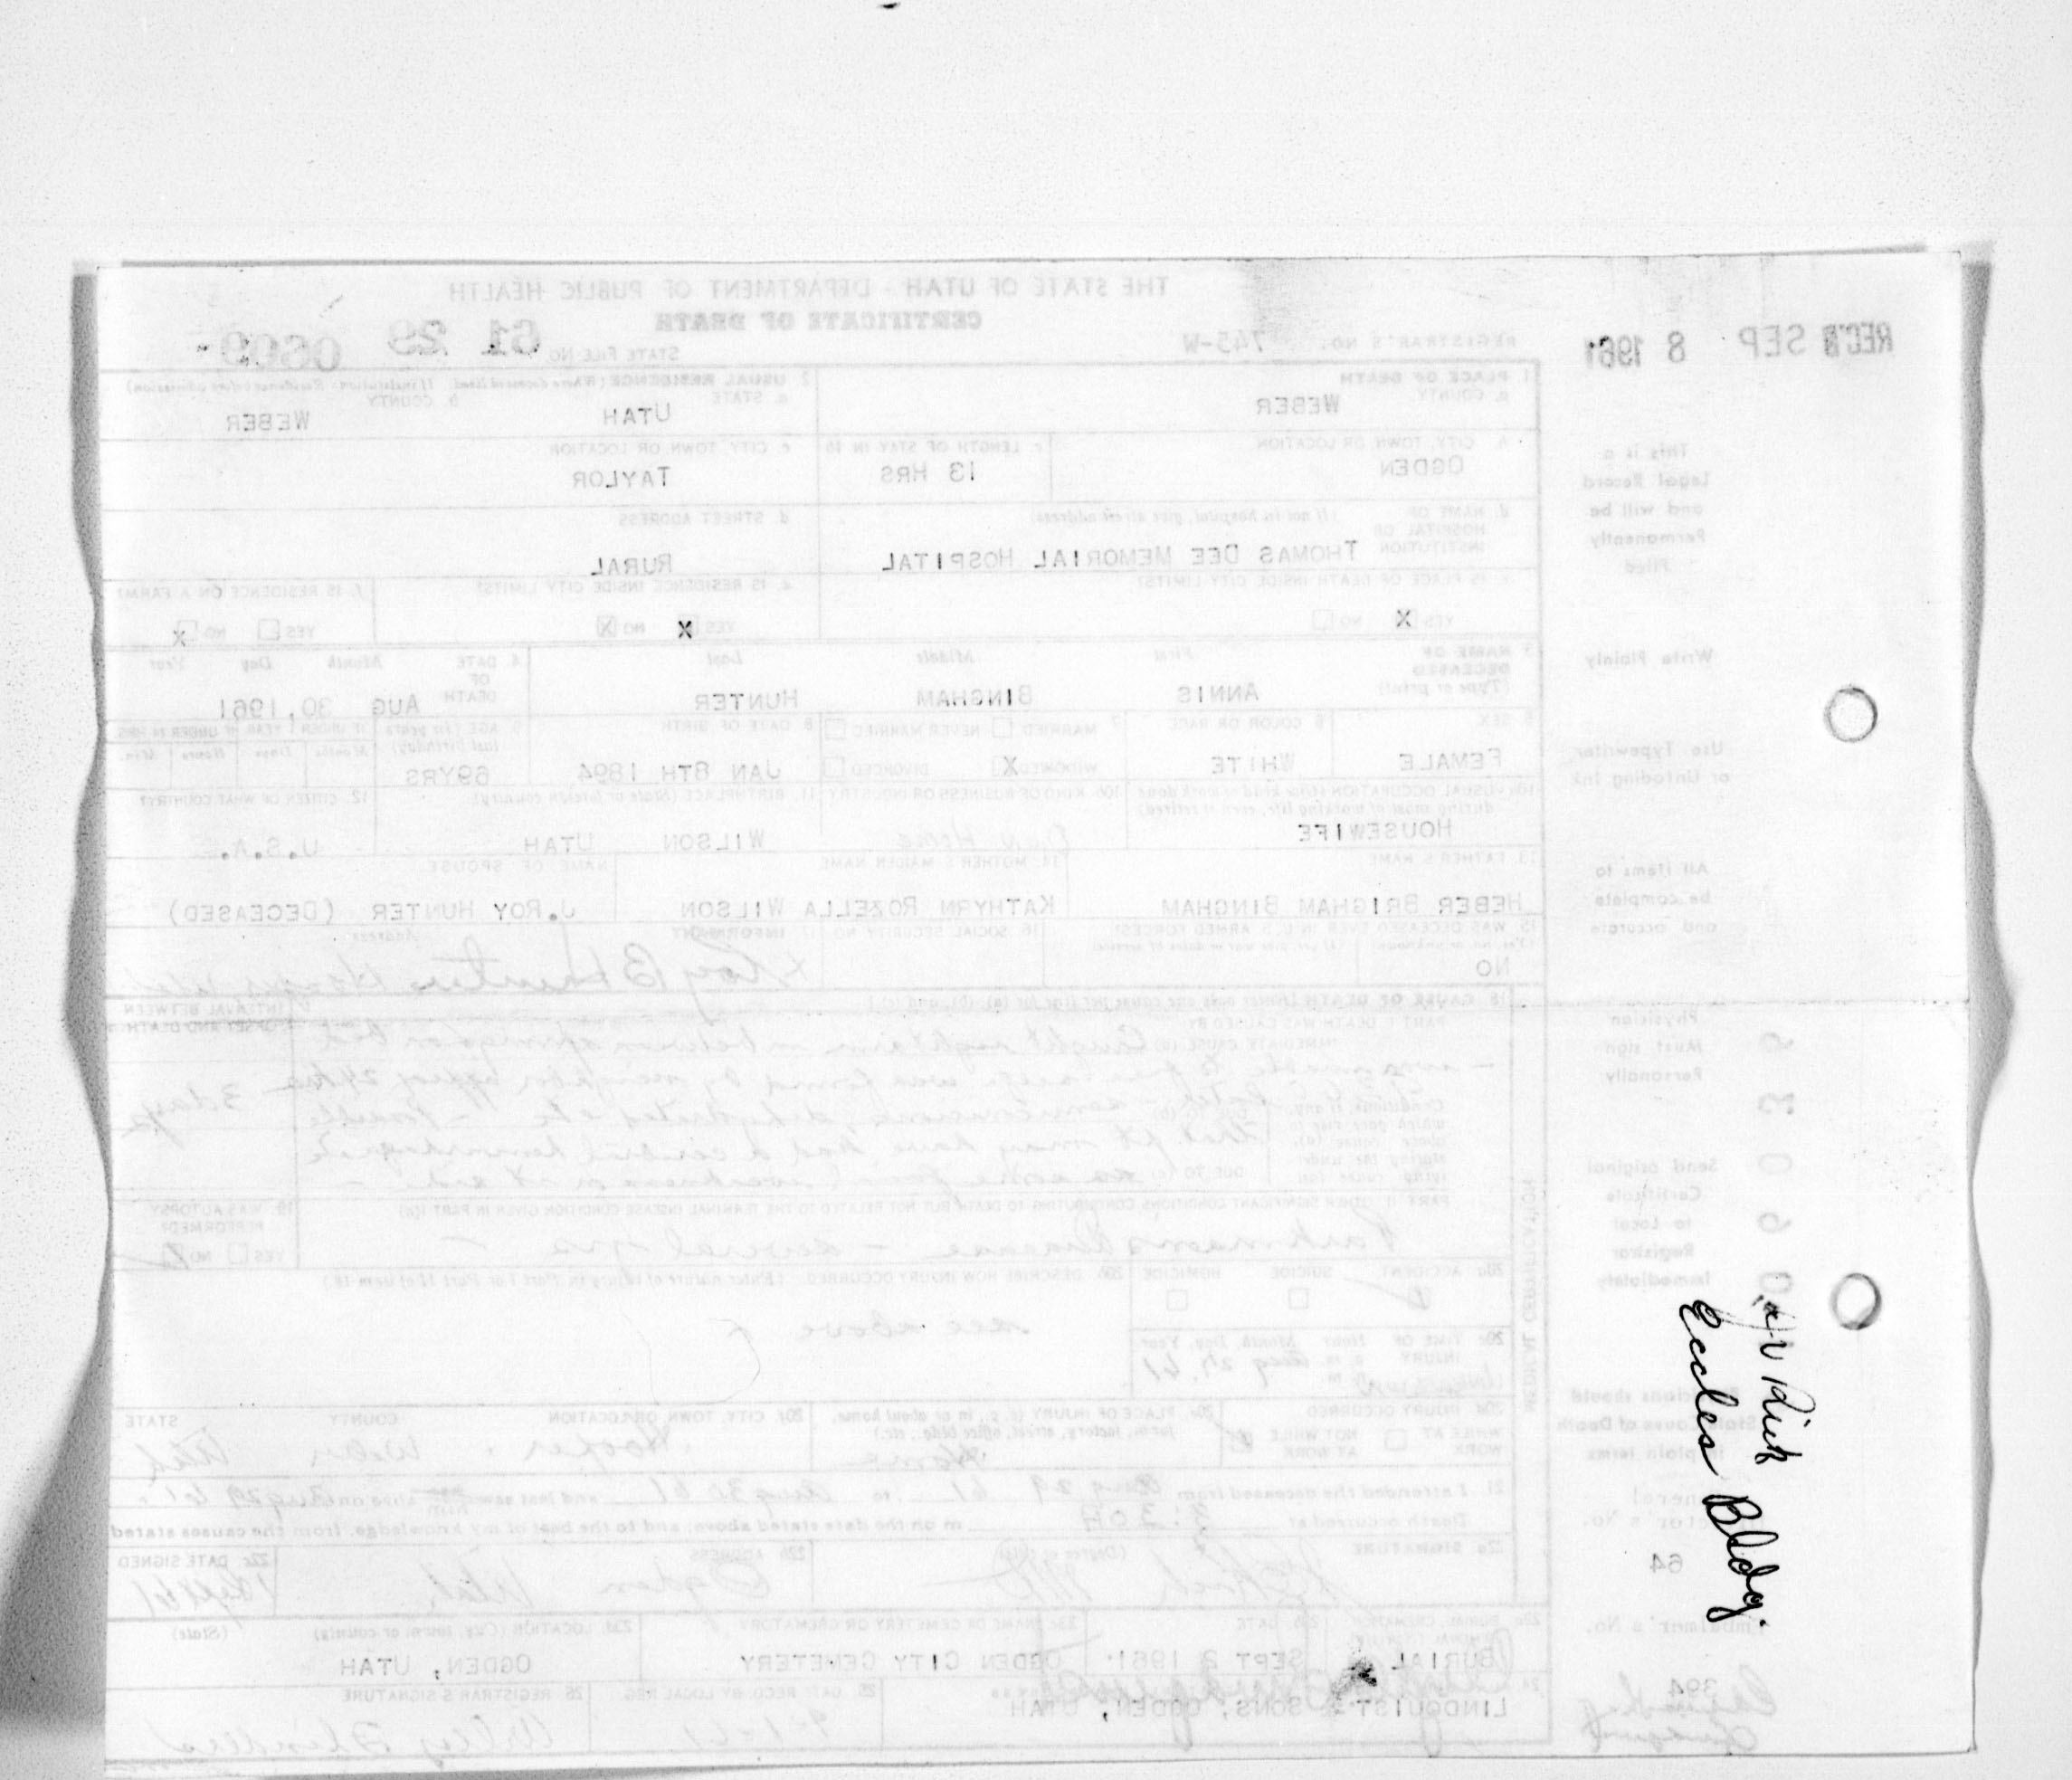 THE STATE OF UTAH - DEPARTMENT OF PUBLIC HEALTH
CERTIFICATE OF DEATH
REC'D SEP 8 1961
REGISTRAR'S NO. 745-W
STATE FILE NO. 61 29 0609
This is a
Legal Record
and will be
Permanently
Filed
Write Plainly
Use Typewriter
or Unfading Ink
All items to
be complete
and accurate
Physician
Must sign
Personally
Send original
Certificate
to Local
Registrar
Immediately
1. PLACE OF DEATH
a. COUNTY
WEBER
2. USUAL RESIDENCE (Where deceased lived. If institution: Residence before admission)
a. STATE
UTAH
b. COUNTY
WEBER
b. CITY, TOWN, OR LOCATION
OGDEN
c. LENGTH OF STAY IN 1b
13 HRS
c. CITY, TOWN, OR LOCATION
TAYLOR
d. NAME OF HOSPITAL OR INSTITUTION (If not in hospital, give street address)
THOMAS DEE MEMORIAL HOSPITAL
d. STREET ADDRESS
RURAL
e. IS PLACE OF DEATH INSIDE CITY LIMITS?
YES X NO
e. IS RESIDENCE INSIDE CITY LIMITS?
YES X NO X
f. IS RESIDENCE ON A FARM?
YES NO X
3. NAME OF DECEASED (Type or print)
First Middle Last
ANNIS BINGHAM HUNTER
4. DATE OF DEATH Month Day Year
AUG 30, 1961
5. SEX
FEMALE
6. COLOR OR RACE
WHITE
7. MARRIED NEVER MARRIED
WIDOWED X DIVORCED
8. DATE OF BIRTH
JAN 8TH 1894
9. AGE (In years last birthday)
69YRS
IF UNDER 1 YEAR IF UNDER 24 HRS
Months Days Hours Min.
10a. USUAL OCCUPATION (Give kind of work done during most of working life, even if retired)
HOUSEWIFE
10b. KIND OF BUSINESS OR INDUSTRY
Own Home
11. BIRTHPLACE (State or foreign country)
WILSON UTAH
12. CITIZEN OF WHAT COUNTRY?
U.S.A.
13. FATHER'S NAME
HEBER BRIGHAM BINGHAM
14. MOTHER'S MAIDEN NAME
KATHYRN ROZELLA WILSON
NAME OF SPOUSE
J.ROY HUNTER (DECEASED)
15. WAS DECEASED EVER IN U. S. ARMED FORCES?
(Yes, no, or unknown) (If yes, give war or dates of service)
NO
16. SOCIAL SECURITY NO.
17. INFORMANT Address
x Roy B Hunter
18. CAUSE OF DEATH [Enter only one cause per line for (a), (b), and (c).]
INTERVAL BETWEEN ONSET AND DEATH
PART I. DEATH WAS CAUSED BY:
IMMEDIATE CAUSE (a) Caught right arm in between springs on bed
- was unable to free self. was found by neighbor
3 days
Conditions, if any, which gave rise to above cause (a), stating the underlying cause last.
DUE TO (b) semiconscious, dehydrated etc - possible
that pt may have had a cerebral hemorrhage
DUE TO (c)
PART II. OTHER SIGNIFICANT CONDITIONS CONTRIBUTING TO DEATH BUT NOT RELATED TO THE TERMINAL DISEASE CONDITION GIVEN IN PART I(a)
Parkinsons Disease - several yrs -
19. WAS AUTOPSY PERFORMED?
YES NO
20a. ACCIDENT SUICIDE HOMICIDE
20b. DESCRIBE HOW INJURY OCCURRED. (Enter nature of injury in Part I or Part II of item 18.)
see above
20c. TIME OF INJURY Hour Month, Day, Year
a. m. p. m.
Unknown Aug 27, 61
MEDICAL CERTIFICATION
20d. INJURY OCCURRED
WHILE AT WORK NOT WHILE AT WORK
20e. PLACE OF INJURY (e. g., in or about home, farm, factory, street, office bldg., etc.)
Home
20f. CITY, TOWN, OR LOCATION COUNTY STATE
Hooper Weber Utah
Physicians should
State Cause of Death
in plain terms
21. I attended the deceased from Aug 29 61 to Aug 30 61 and last saw alive on Aug 29 61.
Death occurred at 3:30 m on the date stated above; and to the best of my knowledge, from the causes stated
22a. SIGNATURE (Degree or title)
22b. ADDRESS
Ogden Utah
22c. DATE SIGNED
Funeral Director's No.
64
23a. BURIAL, CREMATION, REMOVAL (Specify)
BURIAL
23b. DATE
SEPT 2 1961
23c. NAME OF CEMETERY OR CREMATORY
OGDEN CITY CEMETERY
23d. LOCATION (City, town, or county) (State)
OGDEN, UTAH
Embalmer's No.
394
24.
LINDQUIST & SONS, OGDEN, UTAH
25. DATE RECD. BY LOCAL REG.
9-1-61
26. REGISTRAR'S SIGNATURE
Dr Rich
Eccles Bldg.